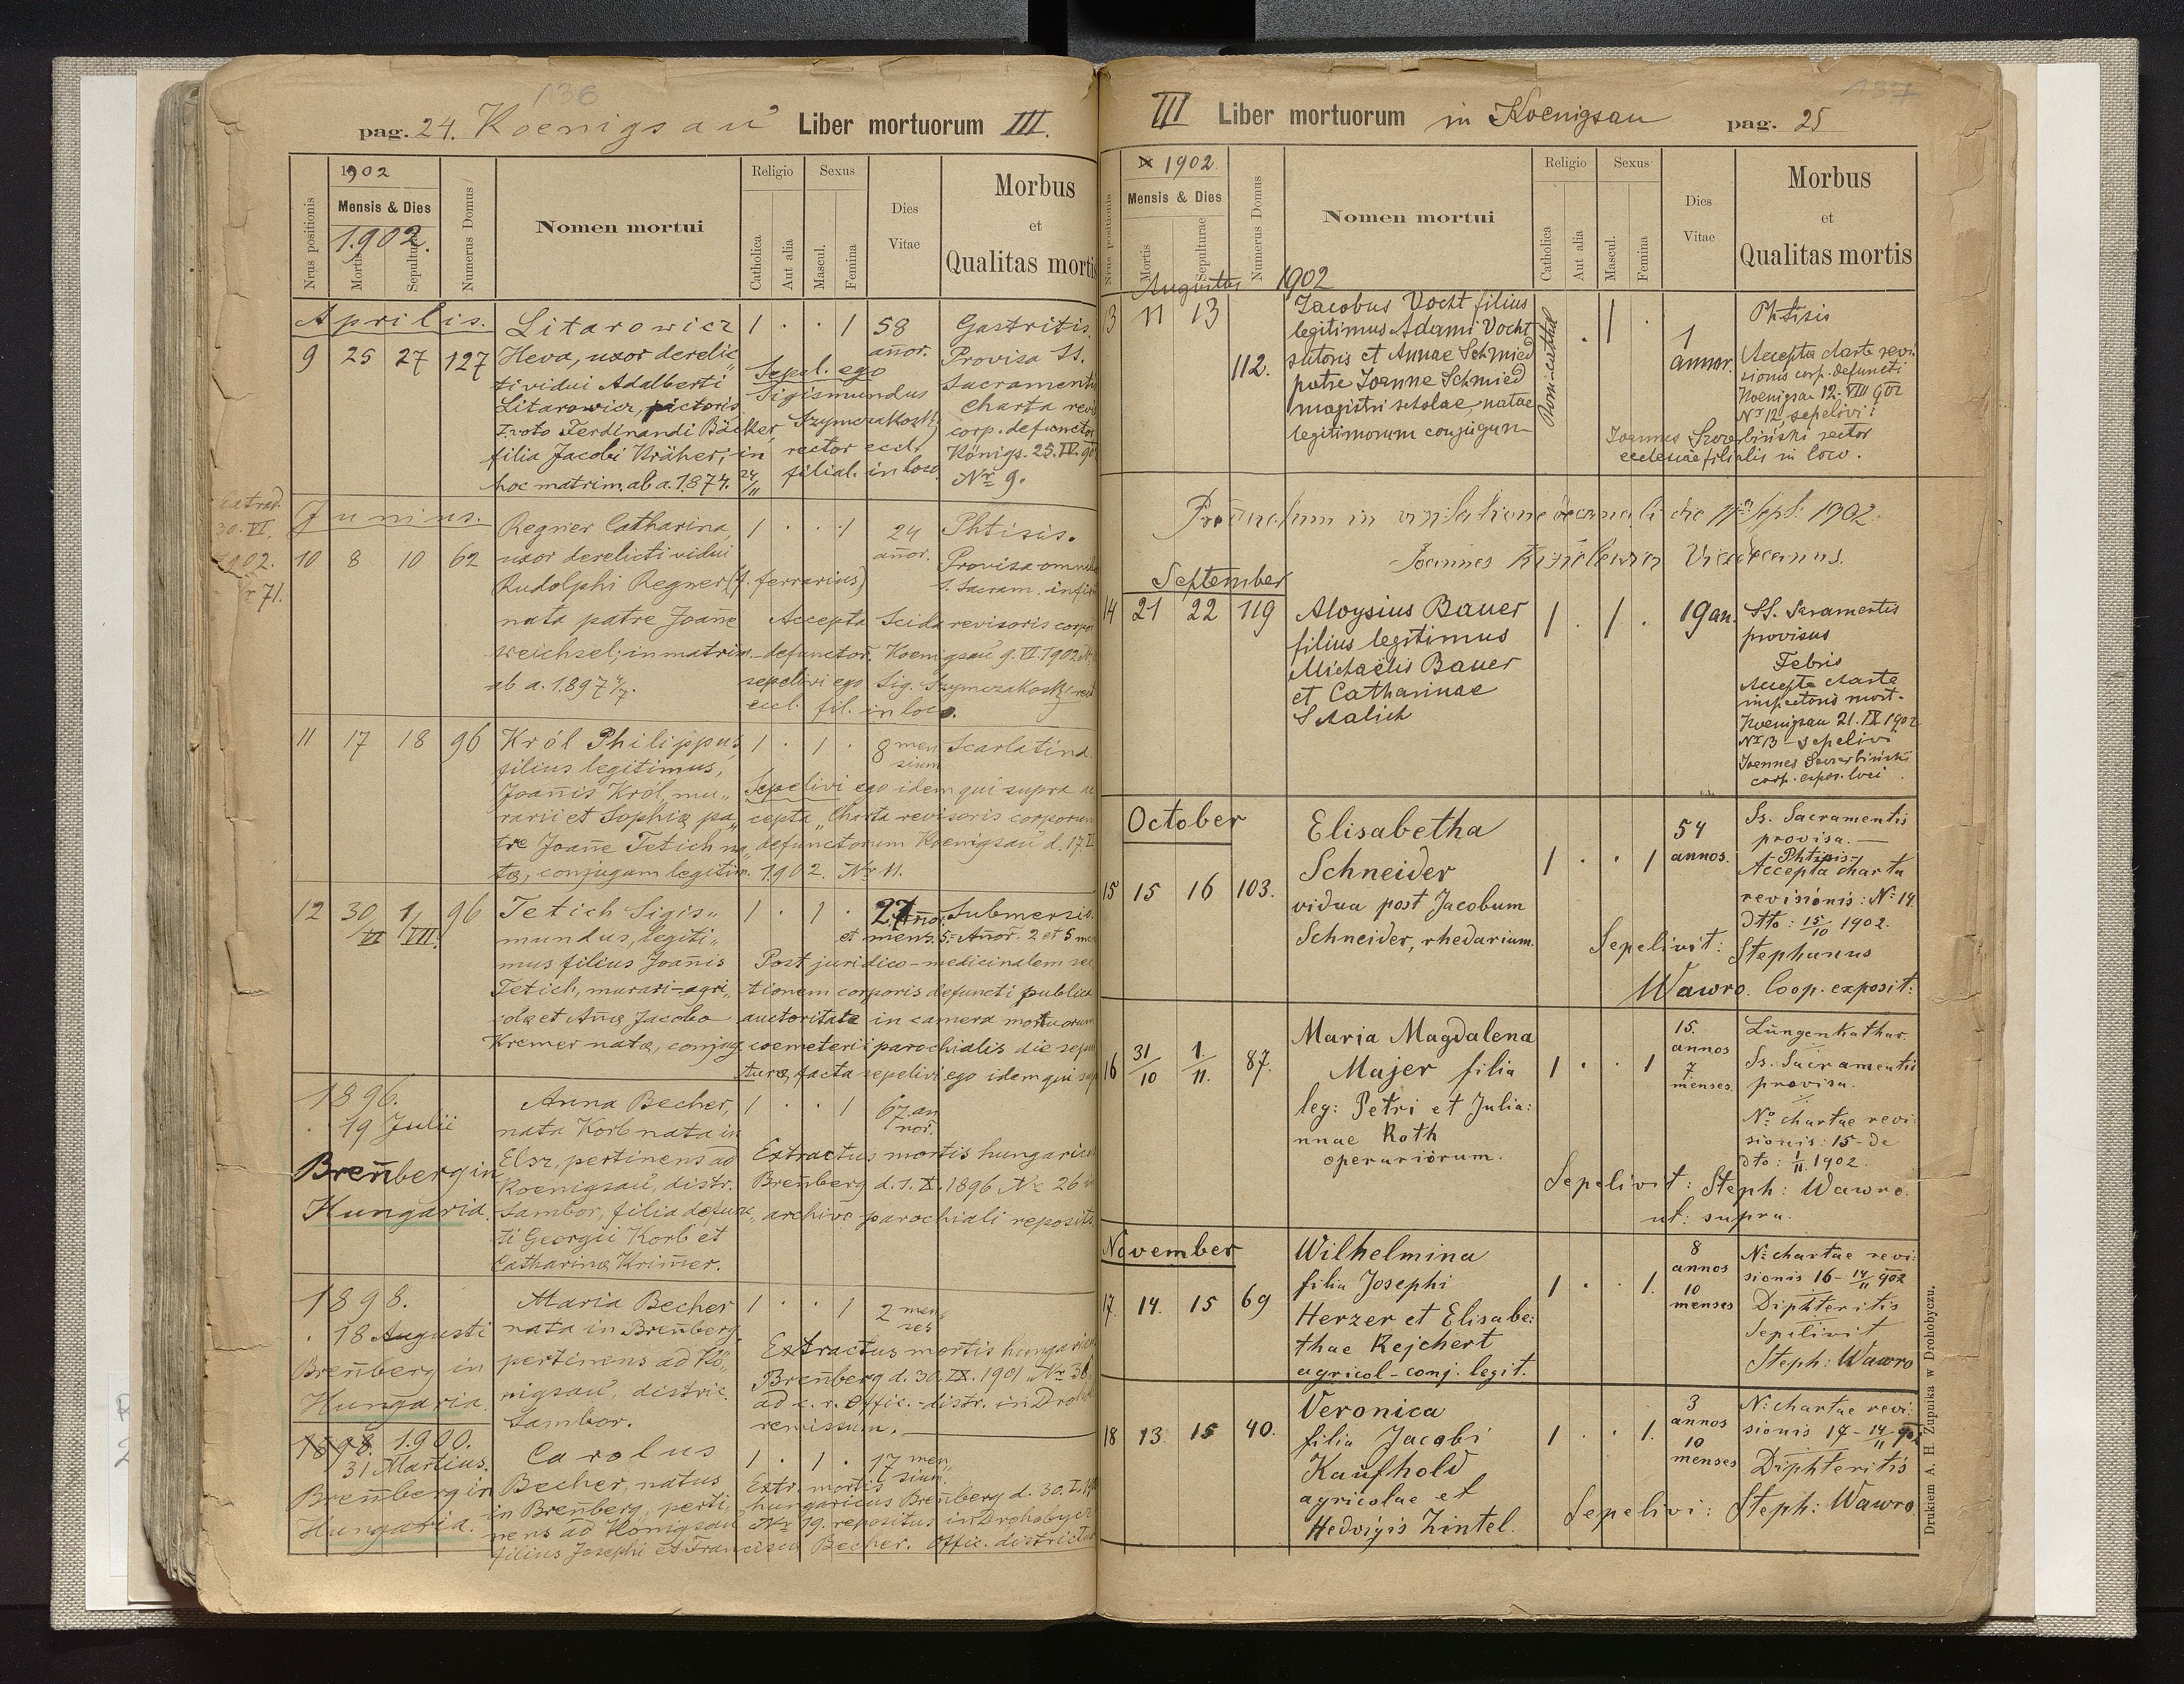 136
pag. 24. Koenigsau Liber mortuorum III.
1902
Nrus positionis
Mensis & Dies
1902.
Mortis
Sepulturae
Numerus Domus
Nomen mortui
Religio
Catholica
Aut alia
Sexus
Mascul.
Femina
Dies
Vitae
Morbus
et
Qualitas mortis
Aprilis.
9 25 27 127
Litarowicz
Heva, uxor derelic„
ti vidui Adalberti
Litarowicz, pictoris
I. voto Ferdinandi Bäcker,
filia Jacobi Kräher, in
hoc matrim. ab a. 1874. 24/11
1 . . 1 58
añor.
Sepel. ego
Sigismundus
Szymczakoski,
rector eccl.
filial. in loco
Gastritis
Provisa SS.
Sacramentis
Charta revi
corp. defunctor
Königs. 25. IV. 90
Nr 9.
30. VI.
71.
Junius.
10 8 10 62
Regner Catharina,
uxor derelicti vidui
Rudolphi Regner (f. ferrarius)
nata patre Joañe
Weichsel; in matrim.
ab a. 1897 4/7.
1 . . 1 24
añor.
Phtisis.
Provisa omnib
S. Sacram. infir
Accepta Scida revisoris corpor
defunctor. Koenigsau 9. VI. 1902
sepelivi ego Sig. Szymczakoski rect
eccl. fil. in loco.
11 17 18 96
Król Philippus,
filius legitimus,
Joañis Król, mu„
rarii et Sophiæ pa„
tre Joañe Tetich na„
tæ, conjugum legitim.
1 . 1 . 8 men
sium
Scarlatina.
Sepelivi ego idem qui supra ac
cepta „Charta revisoris corporum
defunctorum Koenigsau d. 17.
1902. Nr 11.
12 30/VI 1/VII. 96
Tetich Sigis„
mundus, legiti„
mus filius Joañis
Tetich, murari-agri„
colæ et Añæ Jacobo
Kremer natæ, conjug.
1 . 1 . 27 Añor.
et mens. 5.
Submersio.
Añor. 2 et 5 me
Post juridico-medicinalem sec
tionem corporis defuncti publica
auctoritate in camera mortuorum
coemeterii parochialis die sepul
turæ facta sepelivi ego idem qui sup
1896.
. 19 Julii
Breñberg in
Hungaria.
Anna Becher,
nata Korb nata in
Elsz, pertinens ad
Koenigsau, distr.
Sambor, filia defunc„
ti Georgii Korb et
Catharinæ Krimer.
1 . . 1 67 an
nor.
Extractus mortis hungaricus
Breñberg d. 1. X. 1896 Nr 26 in
archivo parochiali reposit
1898.
. 18 Augusti
Breñberg in
Hungaria.
Maria Becher
nata in Breñberg,
pertinens ad Kö„
nigsau, distric.
Sambor.
1 . . 1 2 men
ses
Extractus mortis hungaric
Breñberg d. 30. IX. 1901 Nr 36
ad c. r. Offic. distr. in Droho
remissum.
1898. 1900.
31 Martius.
Breñberg in
Hungaria.
Carolus
Becher, natus
in Breñberg, perti
nens ad Königsau
filius Josephi et Francisca Becher.
1 . 1 . 17 men„
sium.
Extr. mortis
hungaricus Breñberg d. 30. I. 190
Nr 19. repositus in Drohobycz
Offic. districtus
137
III Liber mortuorum in Koenigsau pag. 25
1902.
Nrus positionis
Mensis & Dies
Mortis
Sepulturae
Numerus Domus
Nomen mortui
Religio
Catholica
Aut alia
Sexus
Mascul.
Femina
Dies
Vitae
Morbus
et
Qualitas mortis
Augustus 1902
13 11 13 112.
Jacobus Vocht filius
legitimus Adami Vocht
sutoris et Annae Schmied
patre Joanne Schmied
magistri scholae, natae
legitimorum conjugum
Rom-cathol
. 1 . 1
annor.
Phtisis
Accepta charta revi
sionis corp. defuncti
Koenigsau 12. VIII 902
Nr 12, sepelivi:
Joannes Szczerbiński rector
ecclesiae filialis in loco.
Productum in visitatione decanali die 17 Sept. 1902.
Joannes Vicedecanus.
September
14 21 22 119
Aloysius Bauer
filius legitimus
Michaëlis Bauer
et Catharinae
Stalich
1 . 1 . 19 an.
SS. Sacramentis
provisus
Febris
Accepta charta
inspectoris mort.
Koenigsau 21. IX 1902
Nr 13 - sepelivi
Joannes Szczerbiński
coop. expos. loci
October
15 15 16 103.
Elisabetha
Schneider
vidua post Jacobum
Schneider, rhedarium.
1 . . 1 54
annos.
Ss. Sacramentis
provisa. —
- Phtisis -
Accepta charta
revisionis: No 14.
dtto: 15/10 1902.
Sepelivit: Stephanus
Wawro. Coop. exposit:
16 31/10 1/11. 87.
Maria Magdalena
Majer filia
leg: Petri et Julia:
nnae Roth
operariorum.
1 . . 1 15.
annos
7
menses.
Lungenkathar.
Ss. Sacramentis
provisa.
No chartae revi:
sionis: 15 - de
dto: 1/11. 1902.
Sepelivit: Steph: Wawro.
ut: supra.
November
17. 14. 15 69
Wilhelmina
filia Josephi
Herzer et Elisabe:
thae Rejchert
agricol - conj. legit.
1 . . 1. 8
annos
10
menses
No chartae revi:
sionis 16 - 14/11 902
Diphteritis
Sepilivit
Steph: Wawro
18 13. 15 40.
Veronica
filia Jacobi
Kaufhold
agricolae et
Hedvigis Zintel.
1 . . 1. 3
annos
10
menses
No chartae revi:
sionis 17 - 14/11 902
Diphteritis
Sepelivi: Steph: Wawro
Drukiem A. H. Żupnika w Drohobyczu.